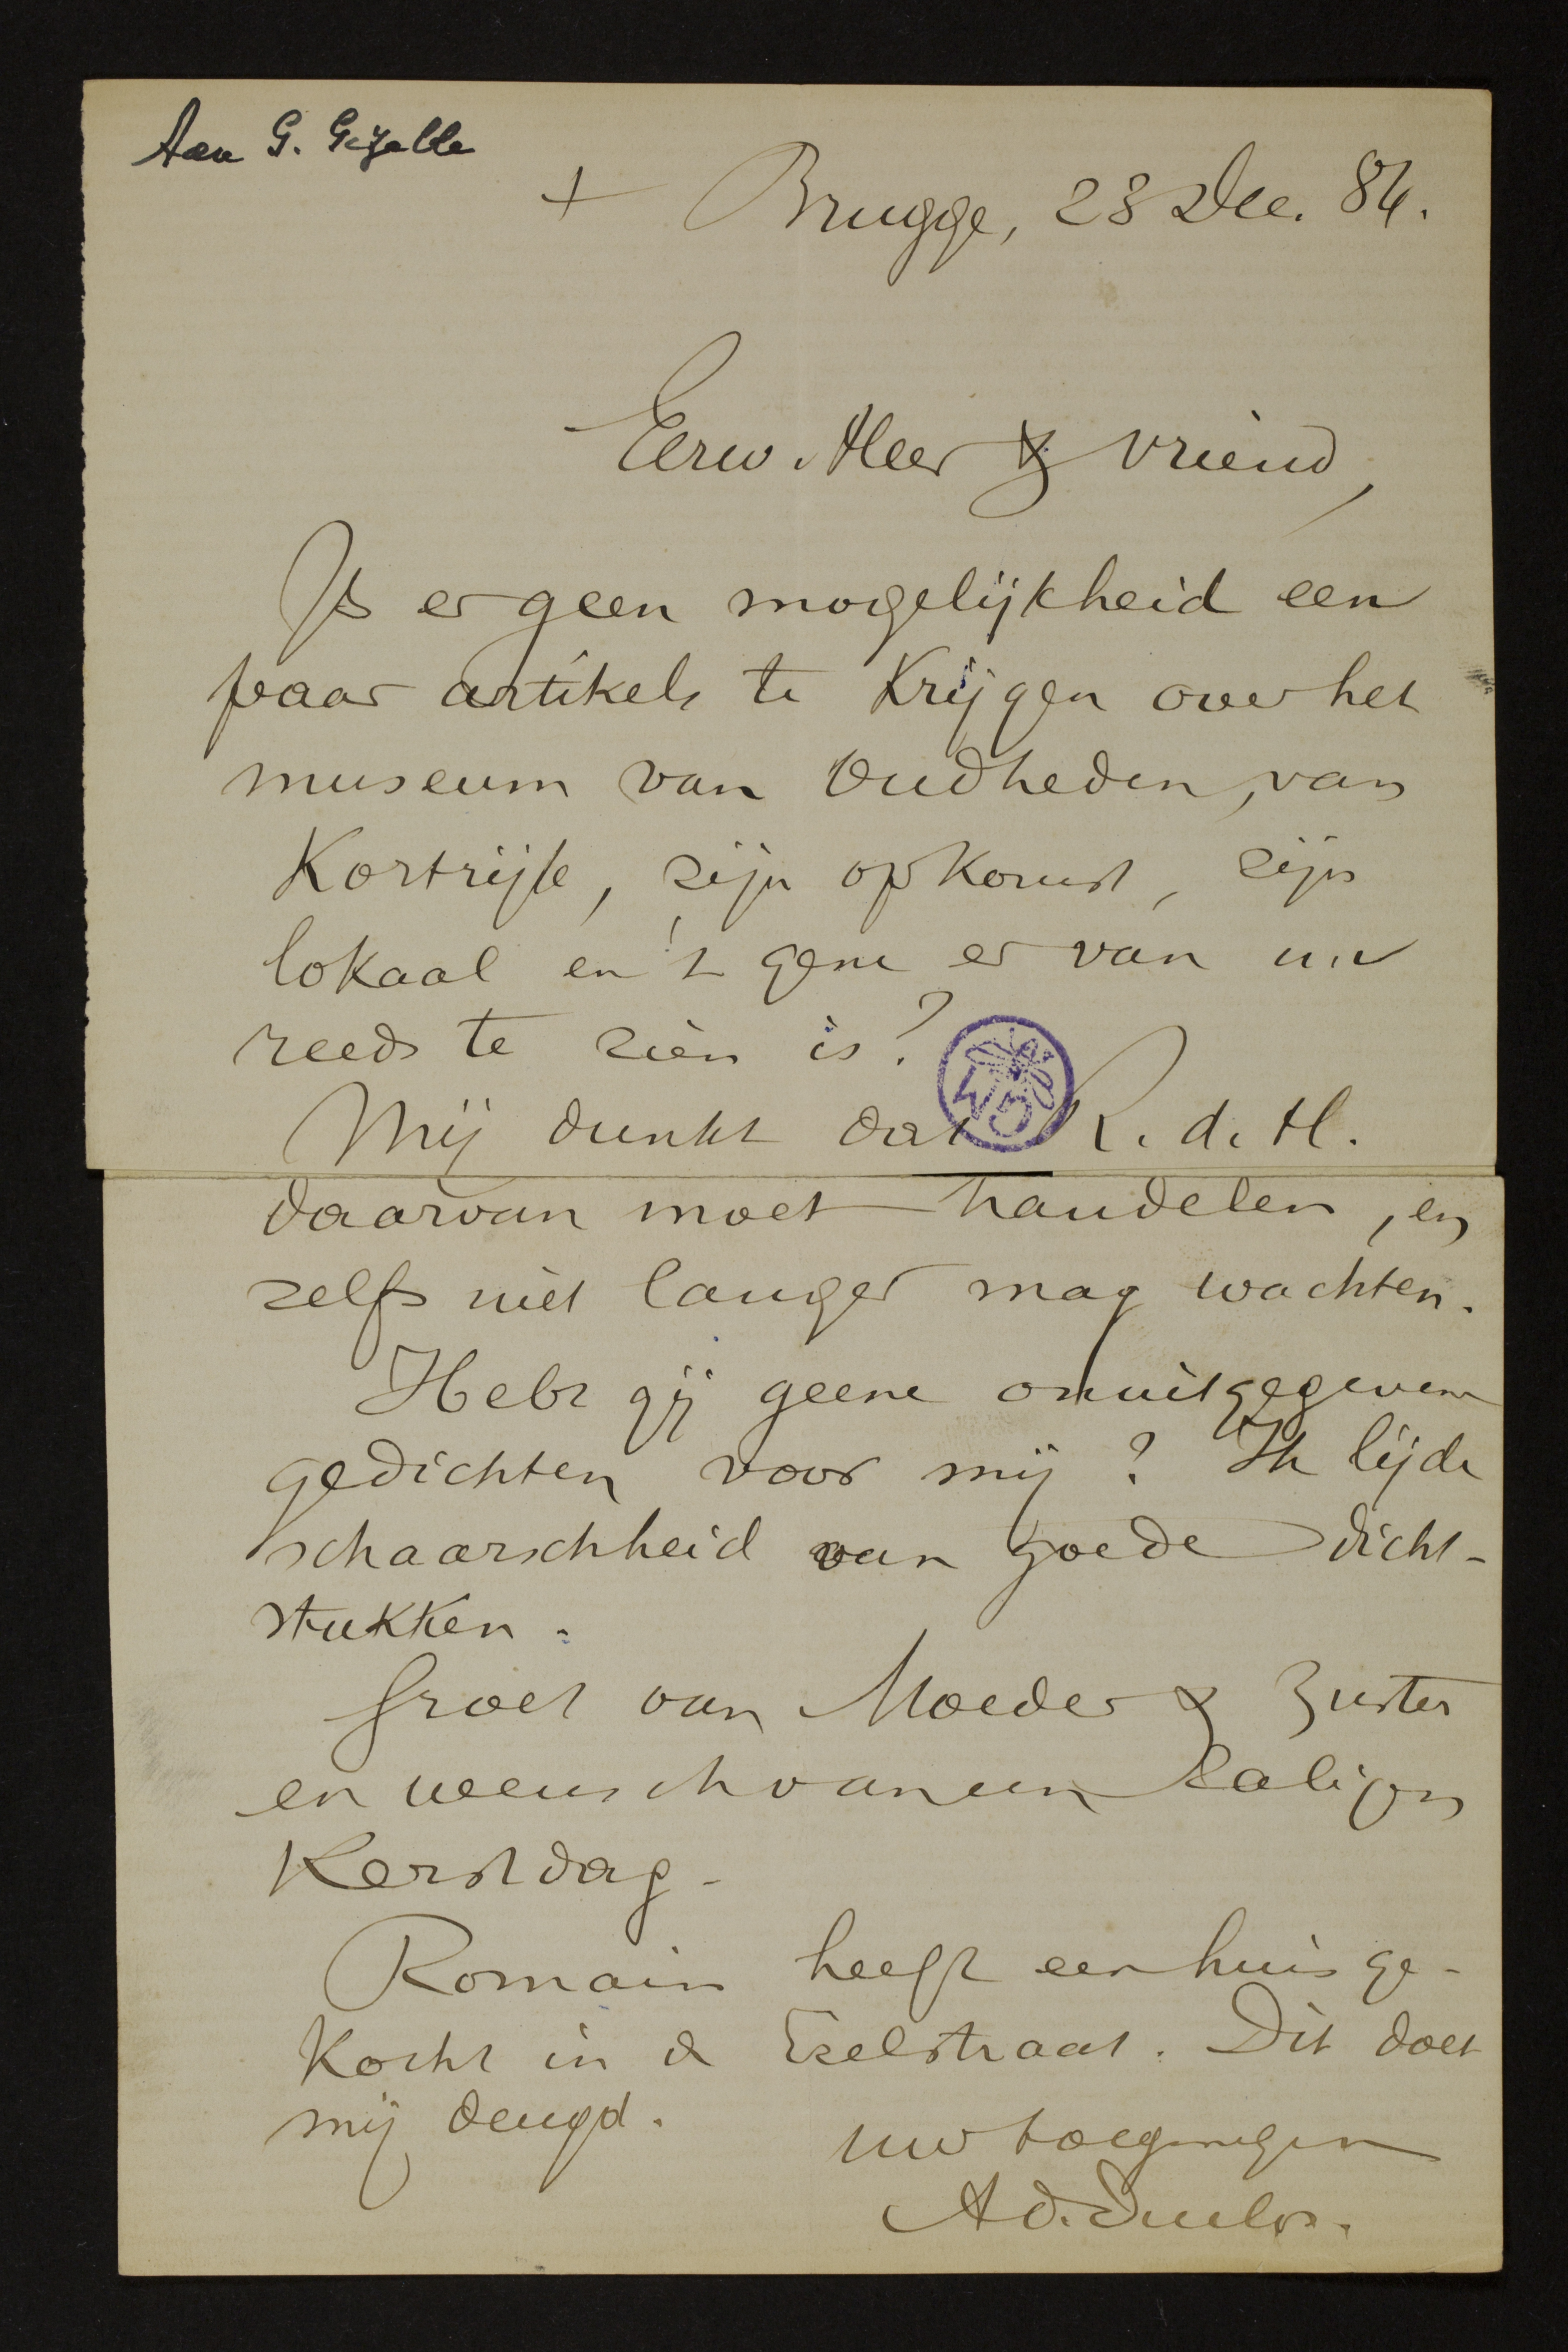 Aan G. Gezelle
+ Brugge, 23 Dec. 84.
Eerw. Heer & vriend,
Is er geen mogelijkheid een
paar artikels te krijgen over het
museum van Oudheden, van
Kortrijk, zijn opkomst, zijn
lokaal en 't gene er van nu
reeds te zien is?
Mij dunkt dat R. d. H.
daarvan moet handelen, en
zelfs niet langer mag wachten.
Hebt gij geene onuitgegevene
gedichten voor mij? Ik lijde
schaarschheid van goede dicht-
stukken.
Groet van Moeder & Zuster
en wensch van een Zaligen
Kerstdag.
Romain heeft een huis ge-
kocht in de Ezelstraat. Dit doet
mij deugd.
uw toegenegen
Ad. Duclos.